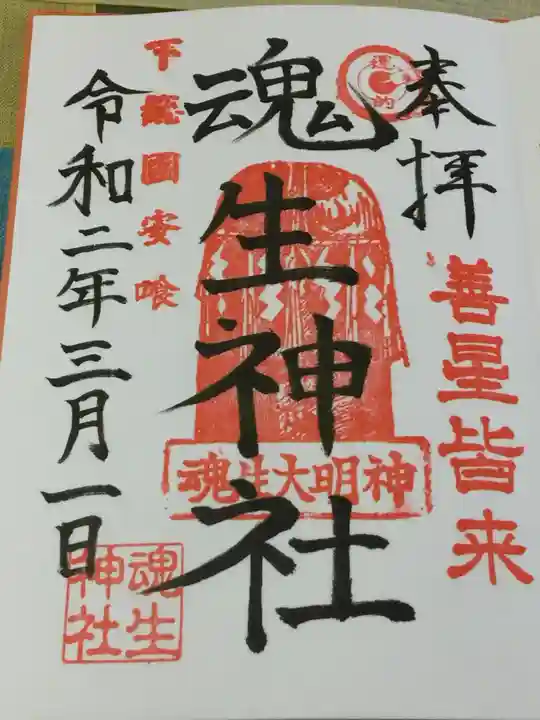 奉拝
善星皆来
運的
魂生神社
魂生大明神
下総国安喰
令和二年三月一日
魂生神社